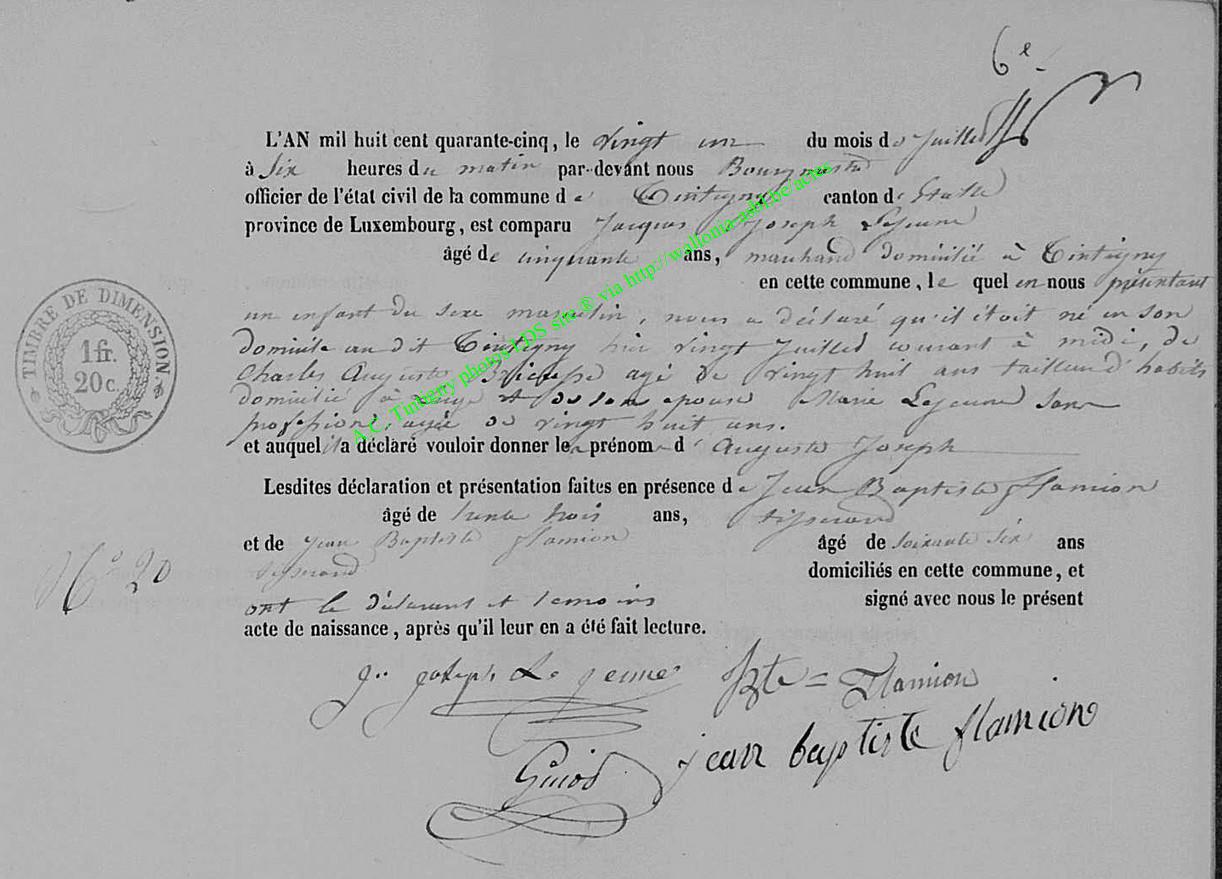 6e
L'AN mil huit cent quarante-cinq, le vingt un du mois de Juillet
à six heures du matin par-devant nous Bourgmestre
officier de l'état civil de la commune de Tintigny canton d'Etalle
province de Luxembourg, est comparu Jacques Joseph Lejeune
âgé de cinquante ans, marchand domicilié à Tintigny
en cette commune, le quel en nous présentant
un enfant du sexe masculin, nous a déclaré qu'il étoit né en son
domicile au dit Tintigny hier vingt Juillet courant à midi, de
Charles Auguste agé de vingt huit ans tailleur d'habits
domicilié à et de son épouse Marie Lejeune sans
profession, agée de vingt huit ans.
et auquel il a déclaré vouloir donner le prénom d'Auguste Joseph
Lesdites déclaration et présentation faites en présence de Jean Baptiste flamion
âgé de trente trois ans, tisserand
et de Jean Baptiste flamion âgé de soixante six ans
tisserand domiciliés en cette commune, et
ont le déclarant et temoins signé avec nous le présent
acte de naissance, après qu'il leur en a été fait lecture.
No 20
TIMBRE DE DIMENSION
1 fr.
20 c.
joseph Le jeune Bte = Flamion
jean baptiste flamion
A.C. Tintigny photos LDS site ® via http://wallonia-asbl.be/actes